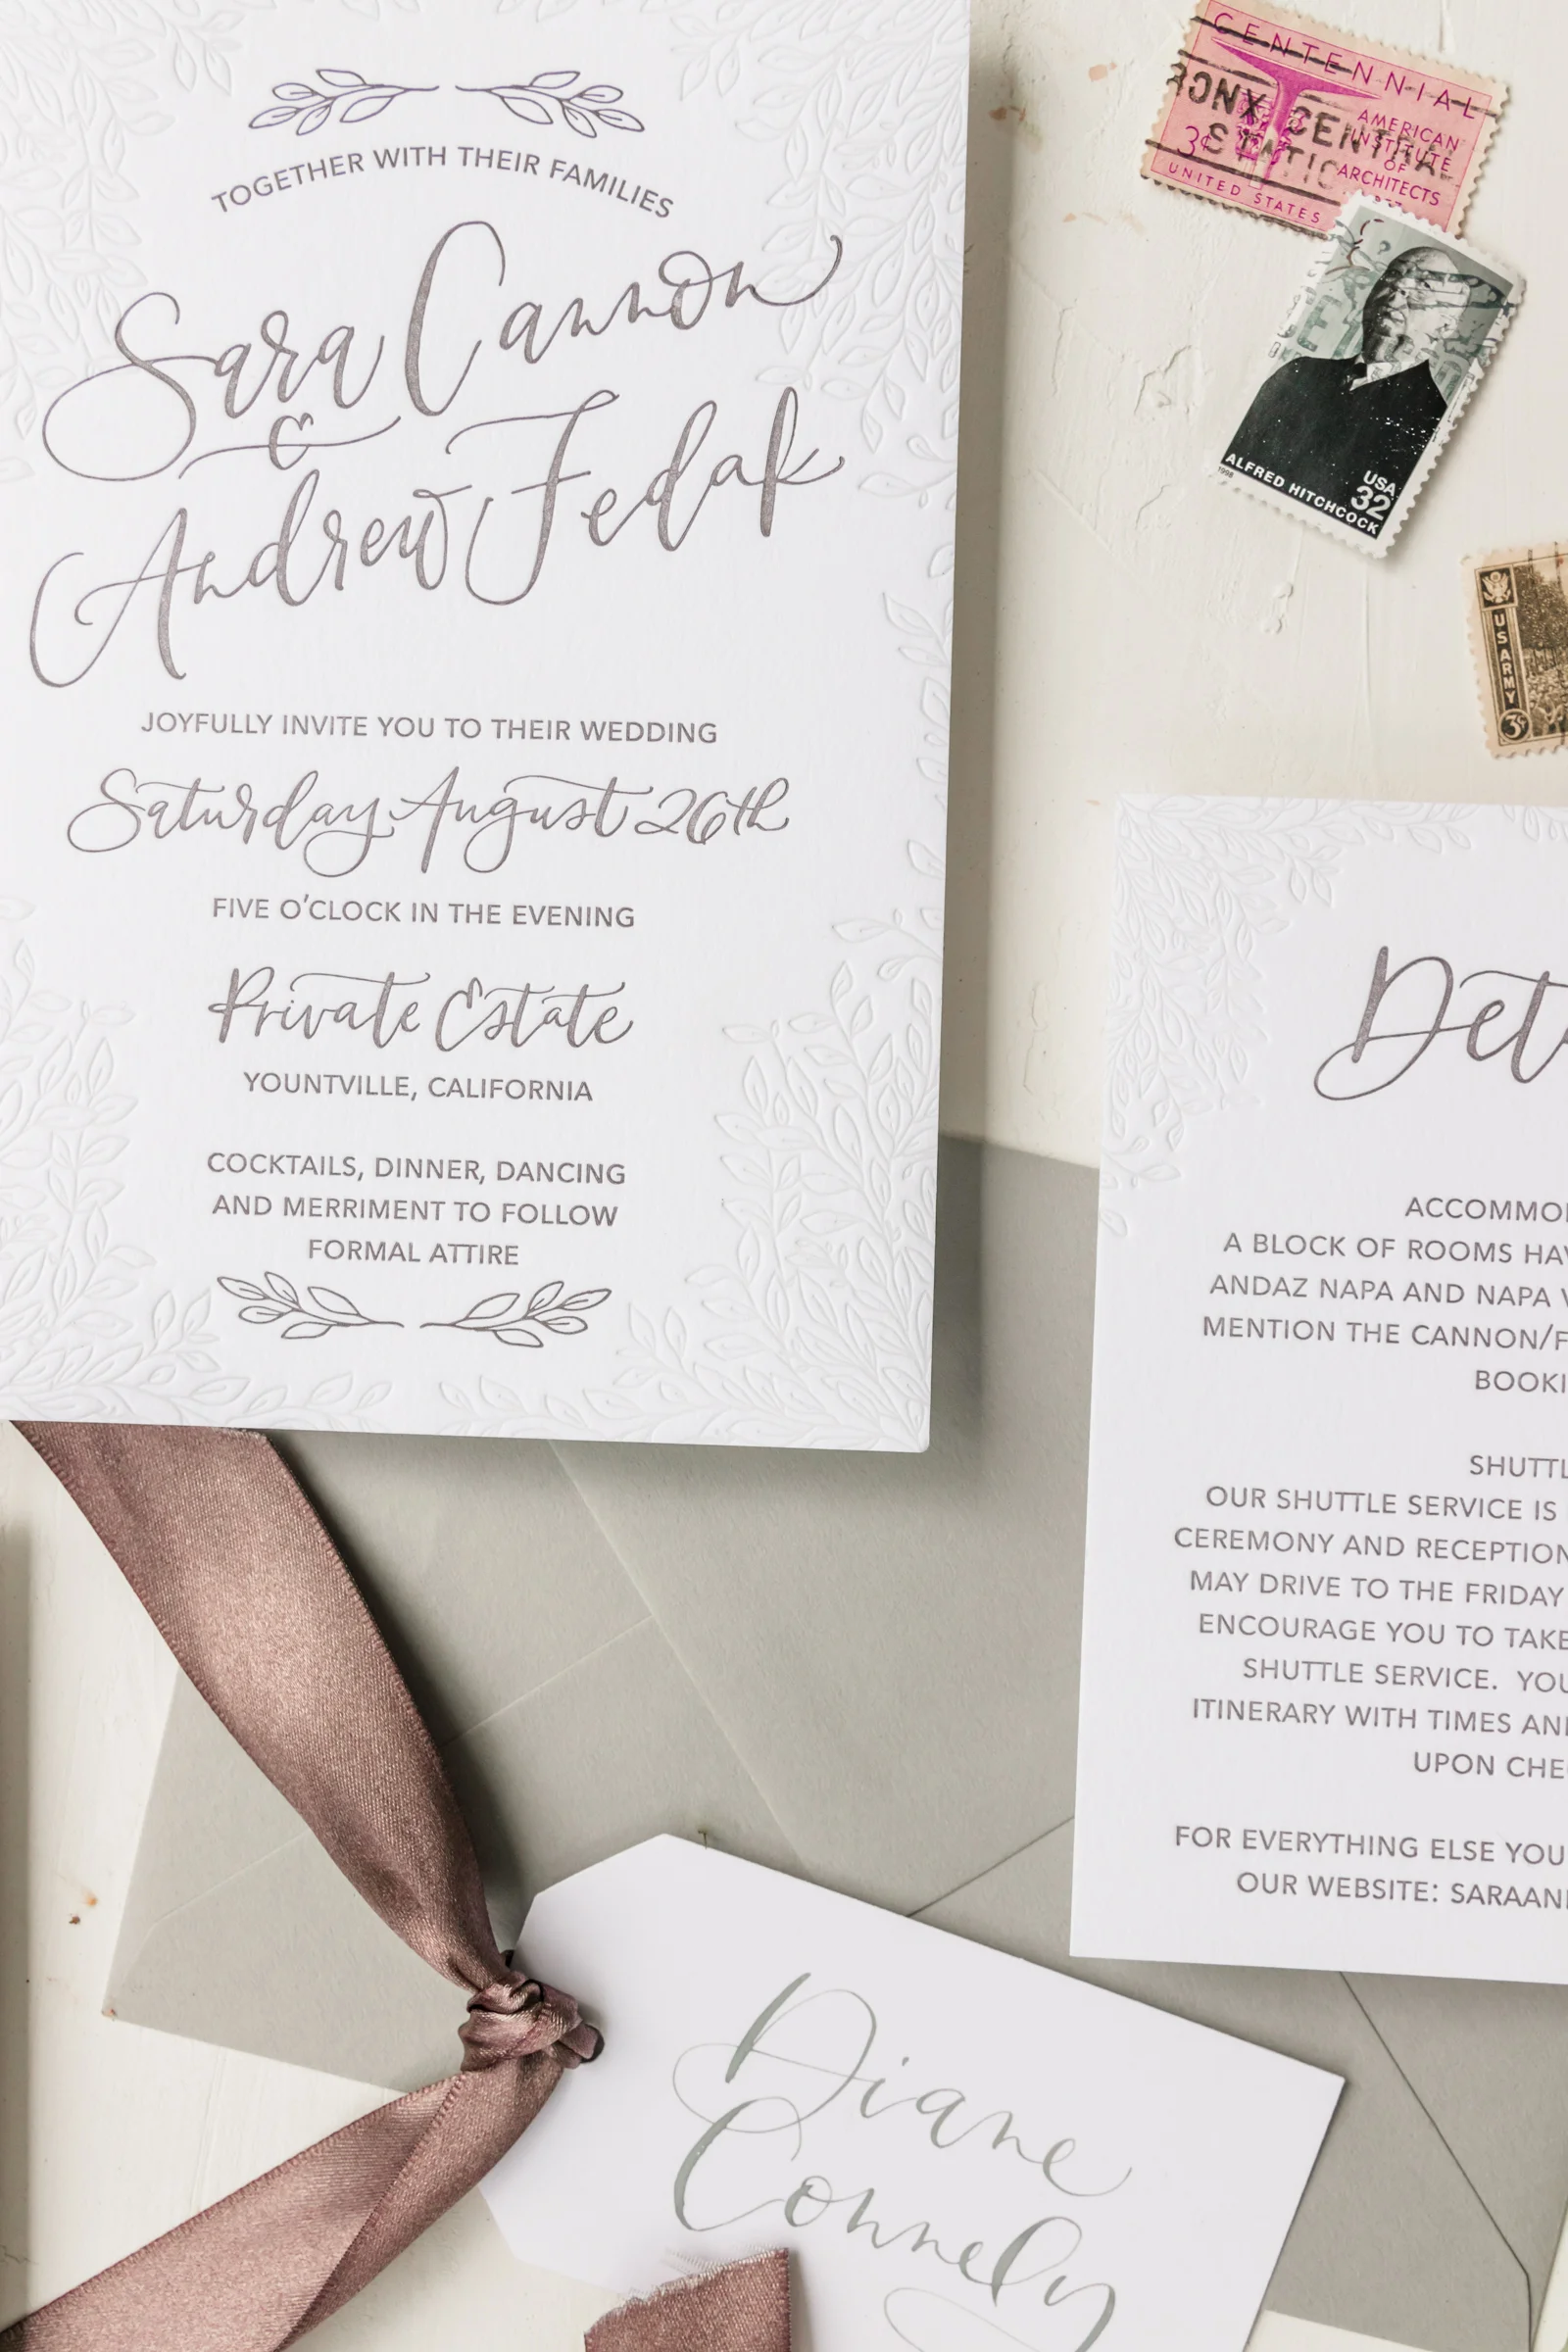 TOGETHER WITH THEIR FAMILIES
Sara Cannon
&
Andrew Fedak
JOYFULLY INVITE YOU TO THEIR WEDDING
Saturday August 26th
FIVE O'CLOCK IN THE EVENING
Private Estate
YOUNTVILLE, CALIFORNIA
COCKTAILS, DINNER, DANCING
AND MERRIMENT TO FOLLOW
FORMAL ATTIRE
CENTENNIAL
AMERICAN
INSTITUTE
OF
ARCHITECTS
3¢
UNITED STATES
CENTRAL
ALFRED HITCHCOCK
USA
32
1998
US ARMY
3¢
Det
ACCOMMO
A BLOCK OF ROOMS HAV
ANDAZ NAPA AND NAPA V
MENTION THE CANNON/F
BOOKI
SHUTTL
OUR SHUTTLE SERVICE IS
CEREMONY AND RECEPTION
MAY DRIVE TO THE FRIDAY
ENCOURAGE YOU TO TAKE
SHUTTLE SERVICE. YOU
ITINERARY WITH TIMES AN
UPON CHE
FOR EVERYTHING ELSE YOU
OUR WEBSITE: SARAAN
Diane
Connely